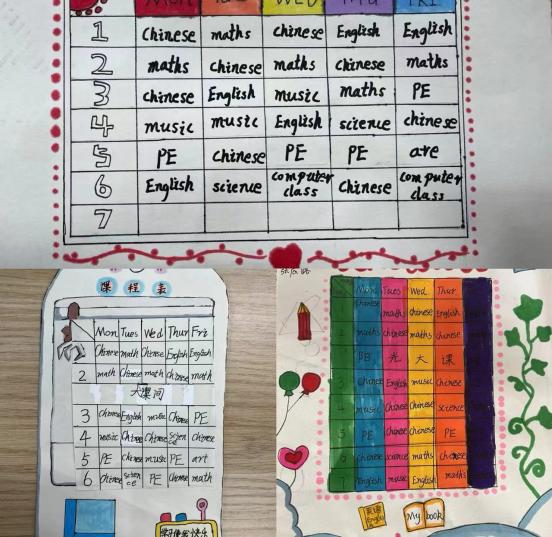 Mon Tues Wed Thu Fri
1 chinese maths chinese English English
2 maths chinese maths chinese maths
3 chinese English music maths PE
4 music music English science chinese
5 PE chinese PE PE are
6 English science computer class chinese computer class
7
课程表
Mon Tues Wed Thur Fri
Chinese math Chinese English English
2 math Chinese math Chinese math
大课间
3 Chinese English music Chinese PE
4 music Chinese Chinese science Chinese
5 PE Chinese music PE art
6 Chinese science PE Chinese math
学习使我快乐
Mon Tues Wed Thur
Chinese maths chinese English
maths chinese maths chinese
阳 光 大 课
3 Chinese English music Chinese
4 music Chinese Chinese science
5 PE Chinese Chinese PE
6 Chinese science maths chinese
7 English music English maths
英语 English
My book